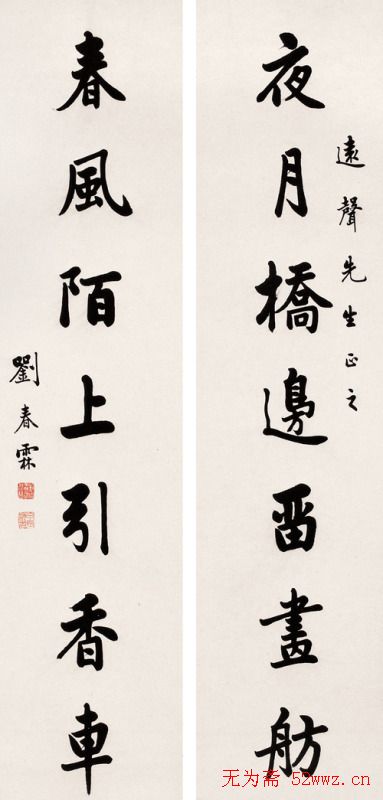 遠聲先生正之
夜月橋邊畱畫舫
春風陌上引香車
劉春霖
无为斋 52wwz.cn